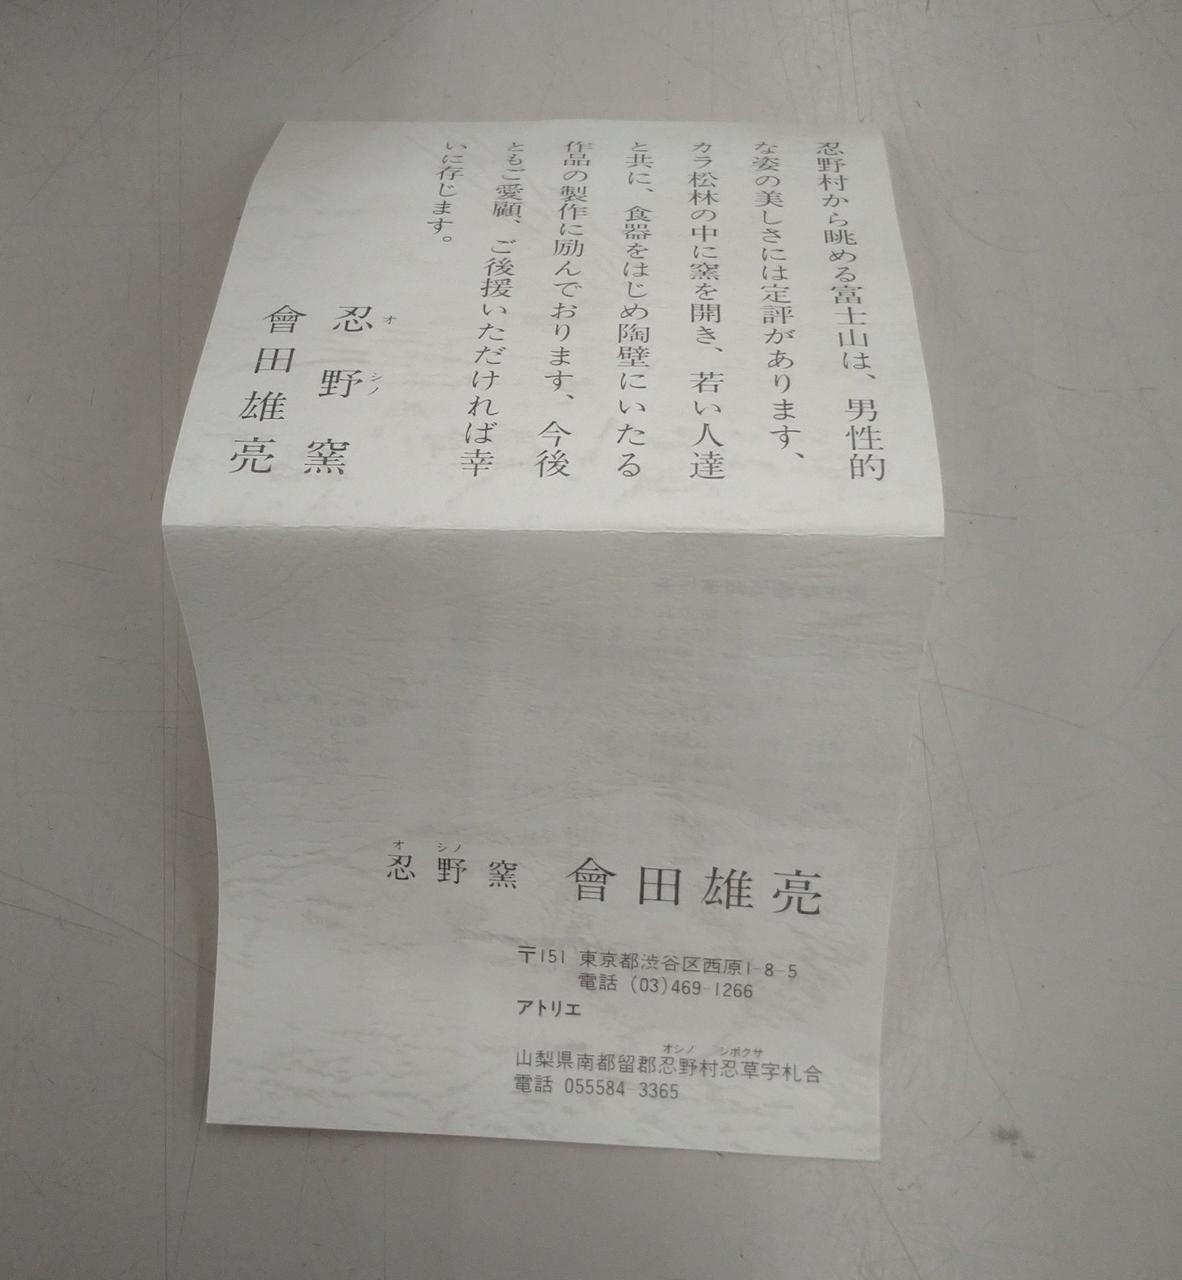 忍野村から眺める富士山は、男性的
な姿の美しさには定評があります、
カラ松林の中に窯を開き、若い人達
と共に、食器をはじめ陶壁にいたる
作品の製作に励んでおります、今後
ともご愛顧、ご後援いただければ幸
いに存じます。
オ シノ
忍野窯
會田雄亮
オ シノ
忍野窯 會田雄亮
〒151 東京都渋谷区西原1-8-5
電話 (03)469-1266
アトリエ
オシノ シボクサ
山梨県南都留郡忍野村忍草字札合
電話 055584-3365